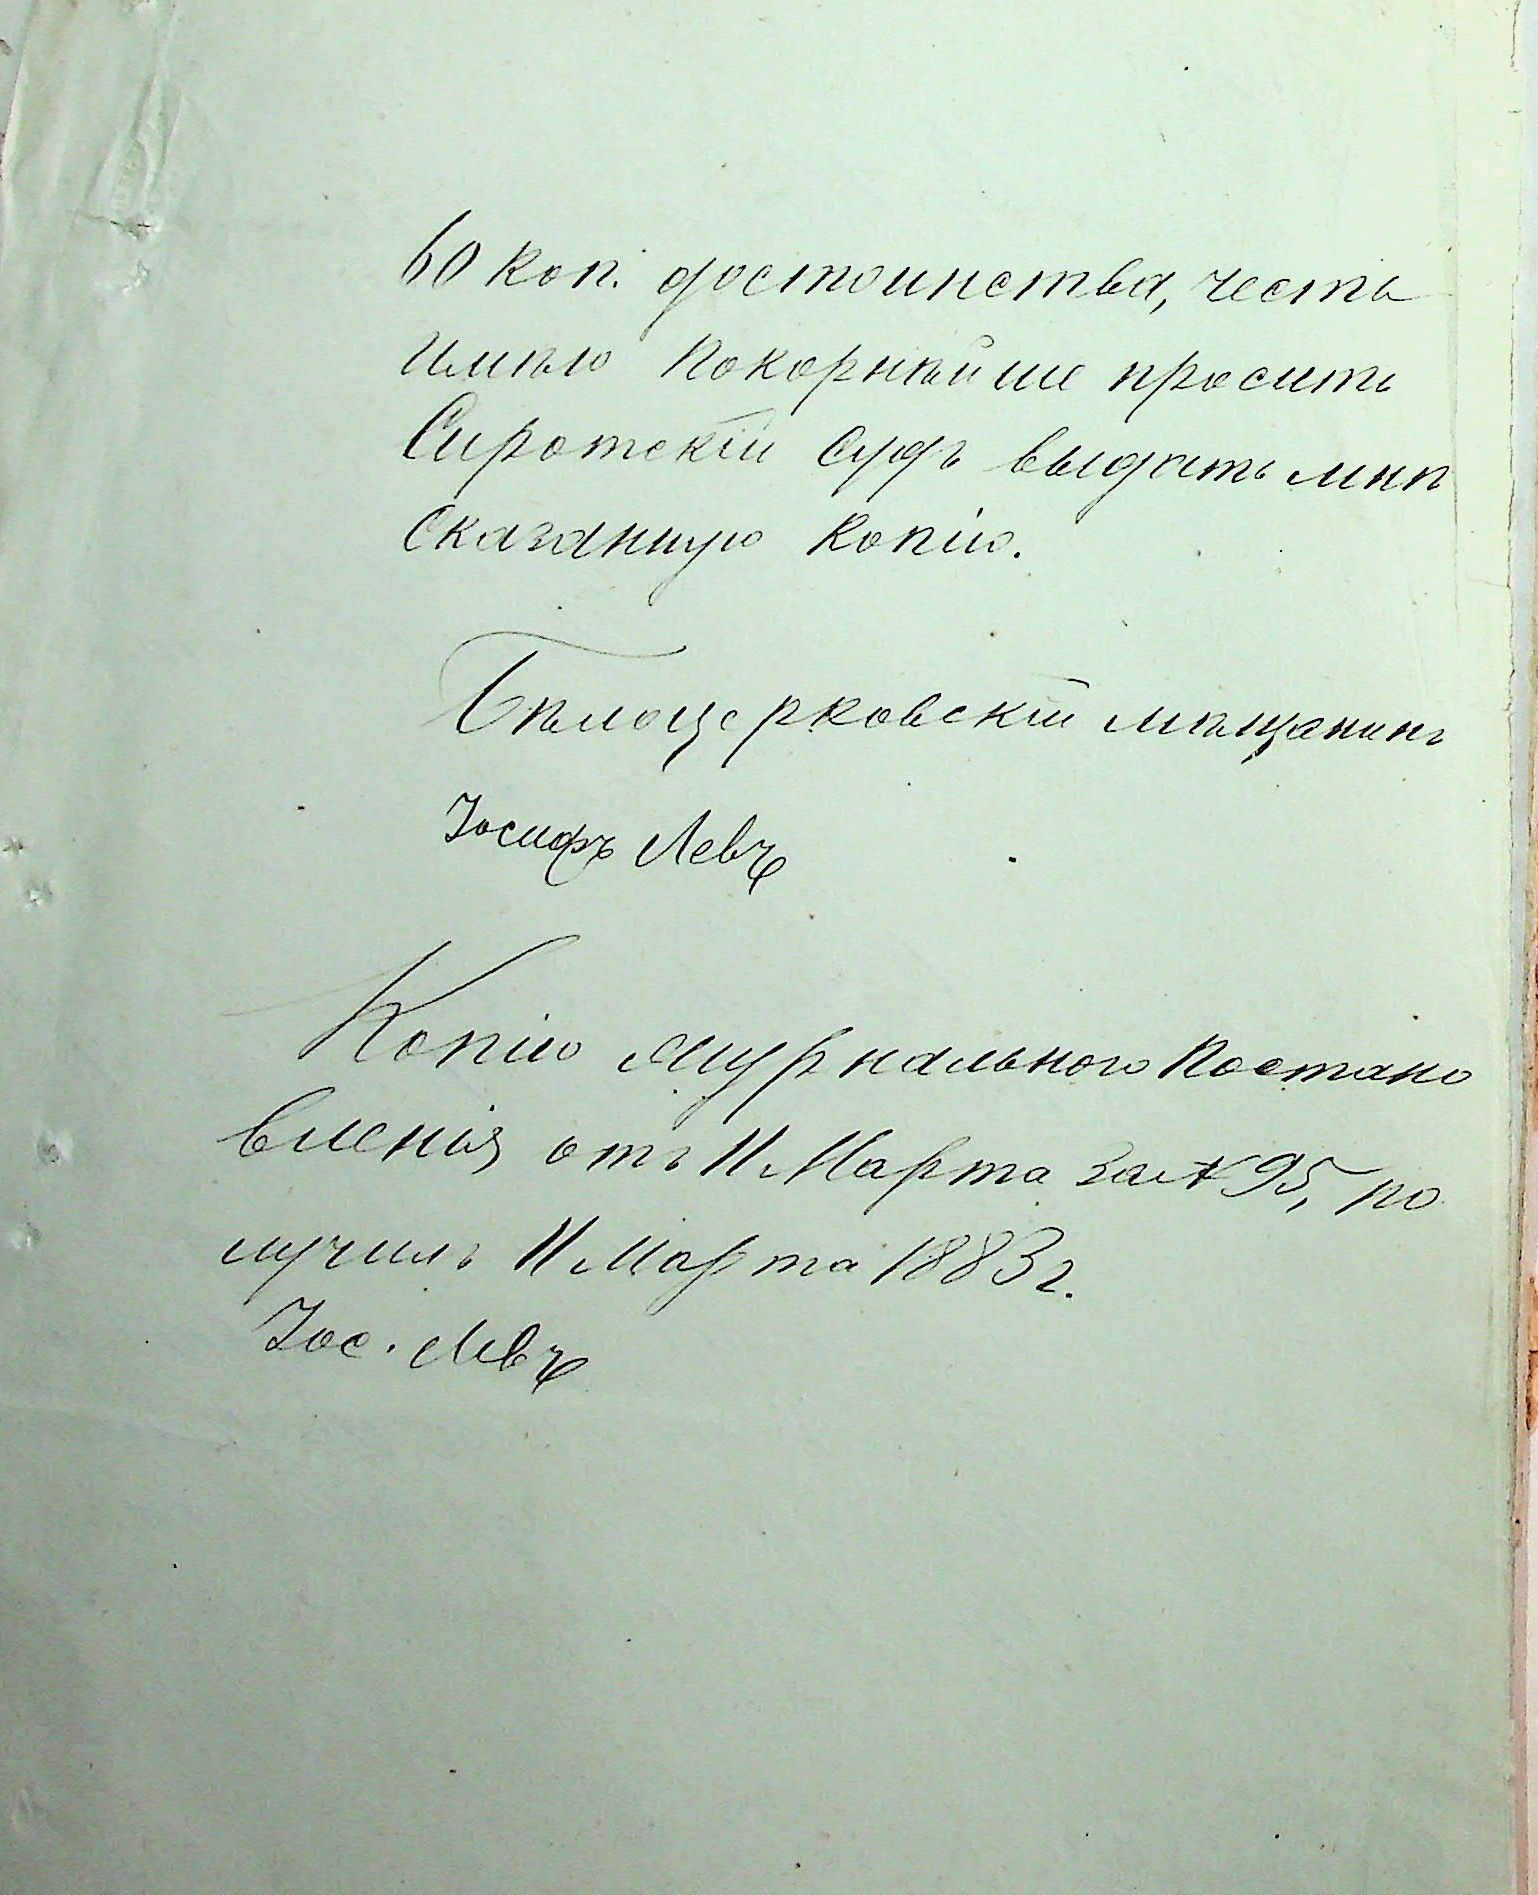 60 коп. достоинства, честь
имѣю покорнѣйше просить
Сиротскій Судъ выдать мнѣ
сказанную копію.
Бѣлоцерковскій мѣщанинъ
Іосифъ Левъ
Копію журнальнаго постано
вленія отъ 11 Марта за № 95, по
лучилъ 11 Марта 1883 г.
Іос. Левъ